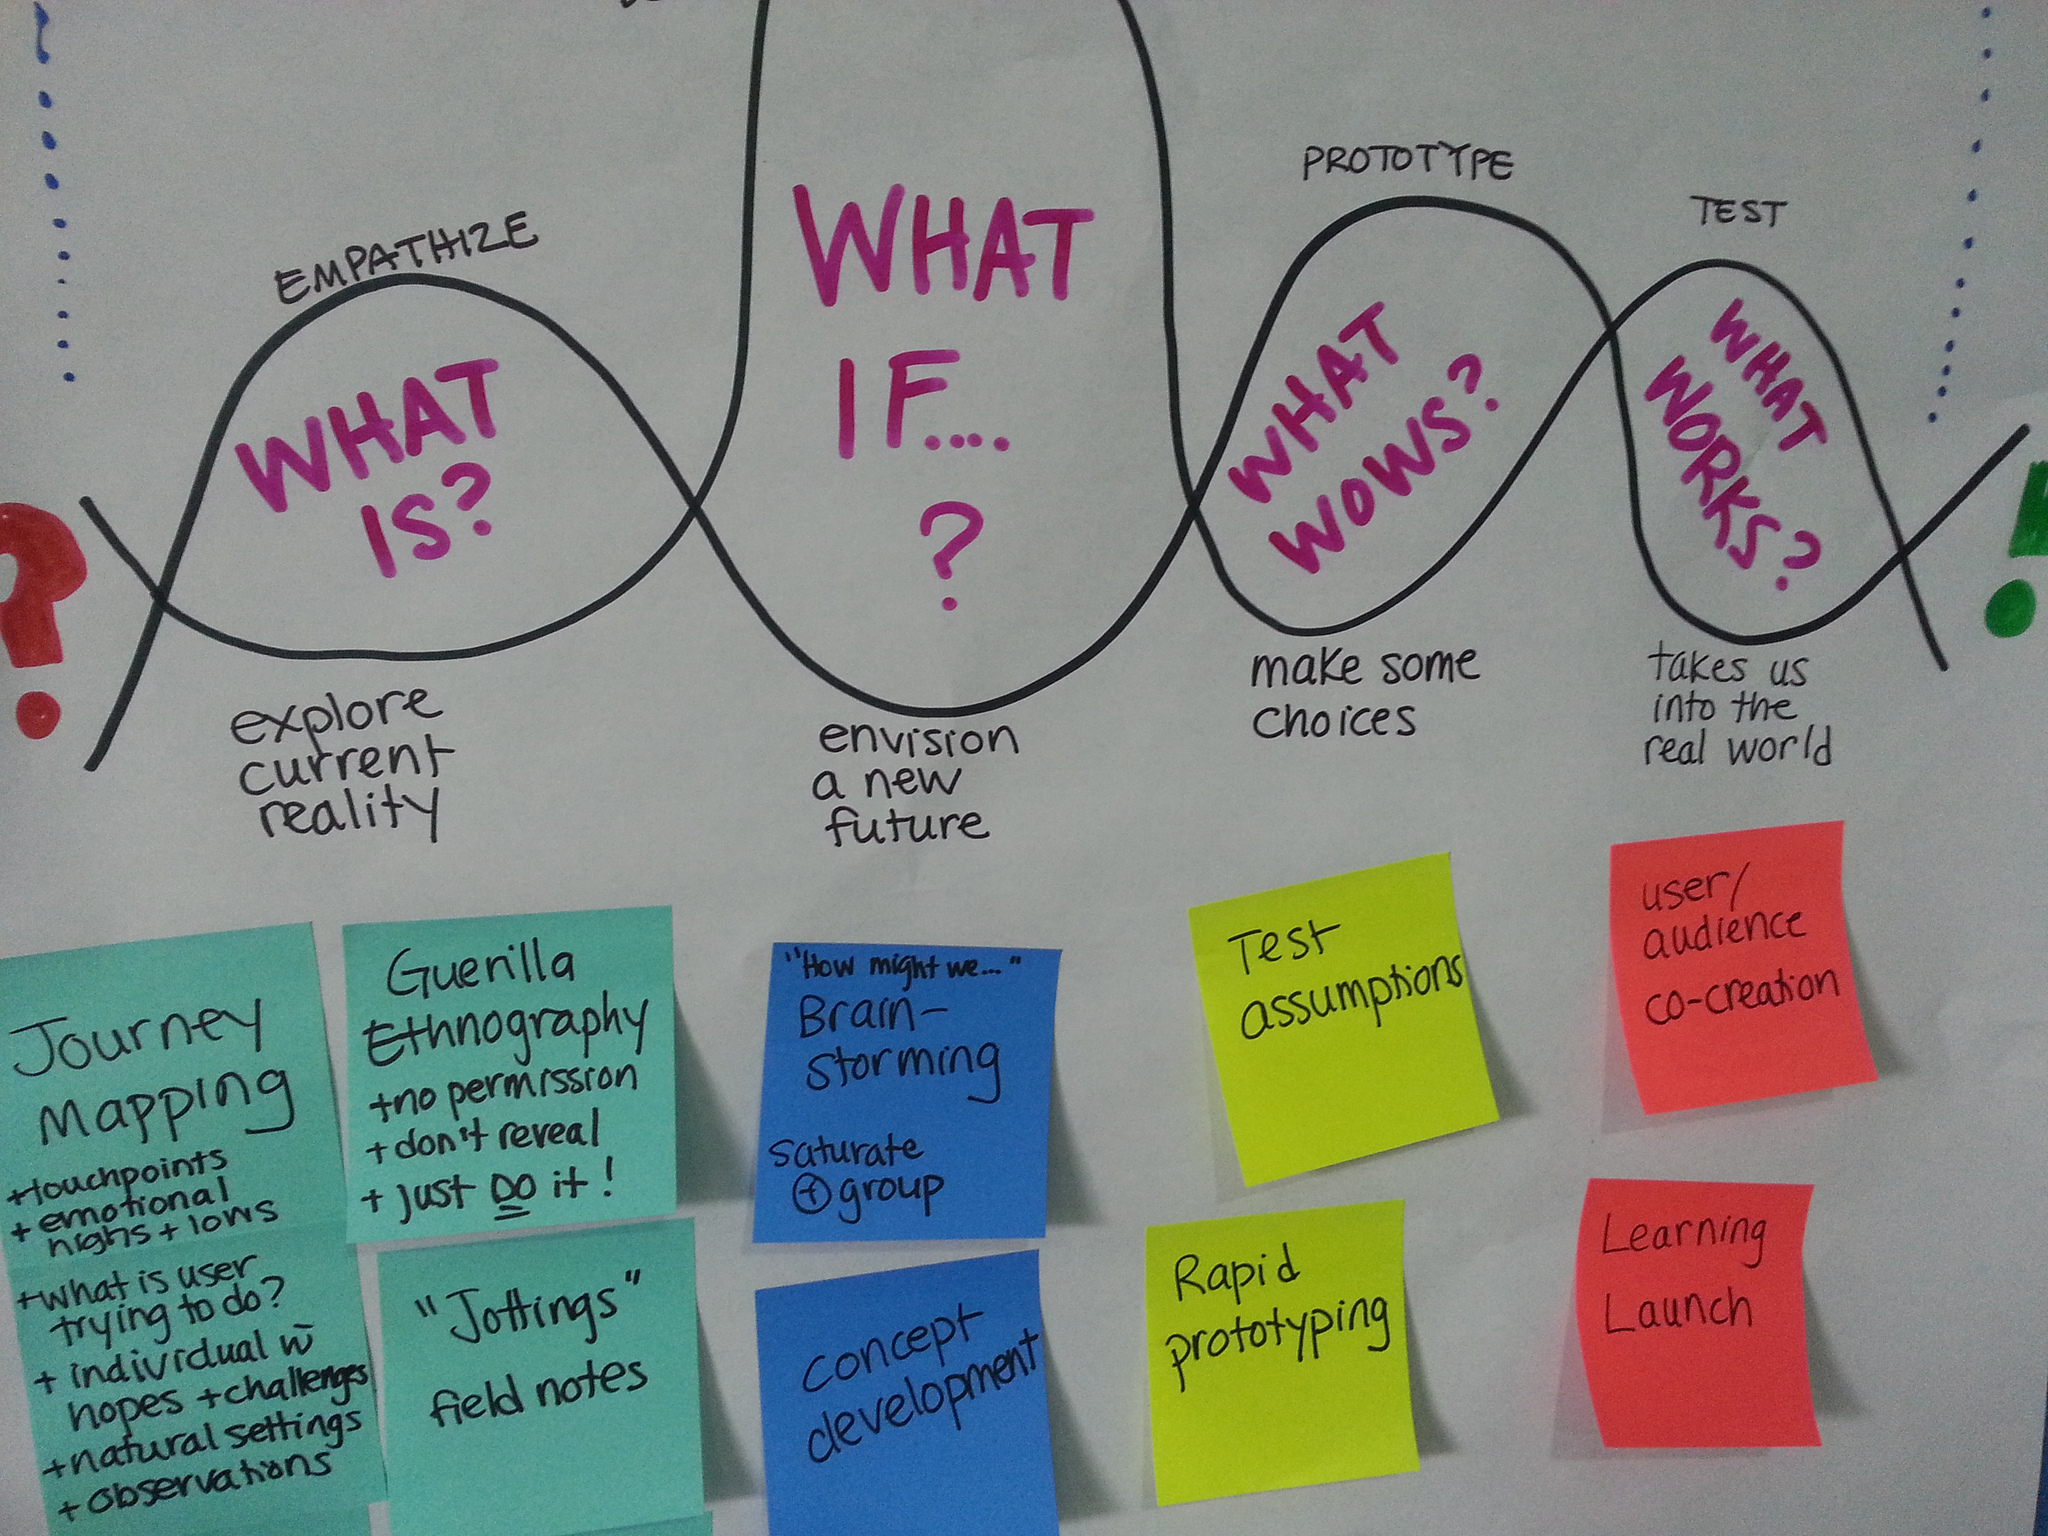 EMPATHIZE
WHAT
IS?
explore
current
reality
WHAT
IF....
?
envision
a new
future
PROTOTYPE
WHAT
WOWS?
make some
choices
TEST
WHAT
WORKS?
takes us
into the
real world
?
!
Journey
Mapping
+touchpoints
+emotional
highs + lows
+what is user
trying to do?
+ individual w̄
hopes + challenges
+natural settings
+observations
Guerilla
Ethnography
+no permission
+don't reveal
+ just DO it!
"Jottings"
field notes
"How might we..."
Brain-
storming
saturate
⊕ group
concept
development
Test
assumptions
Rapid
prototyping
user/
audience
co-creation
Learning
Launch